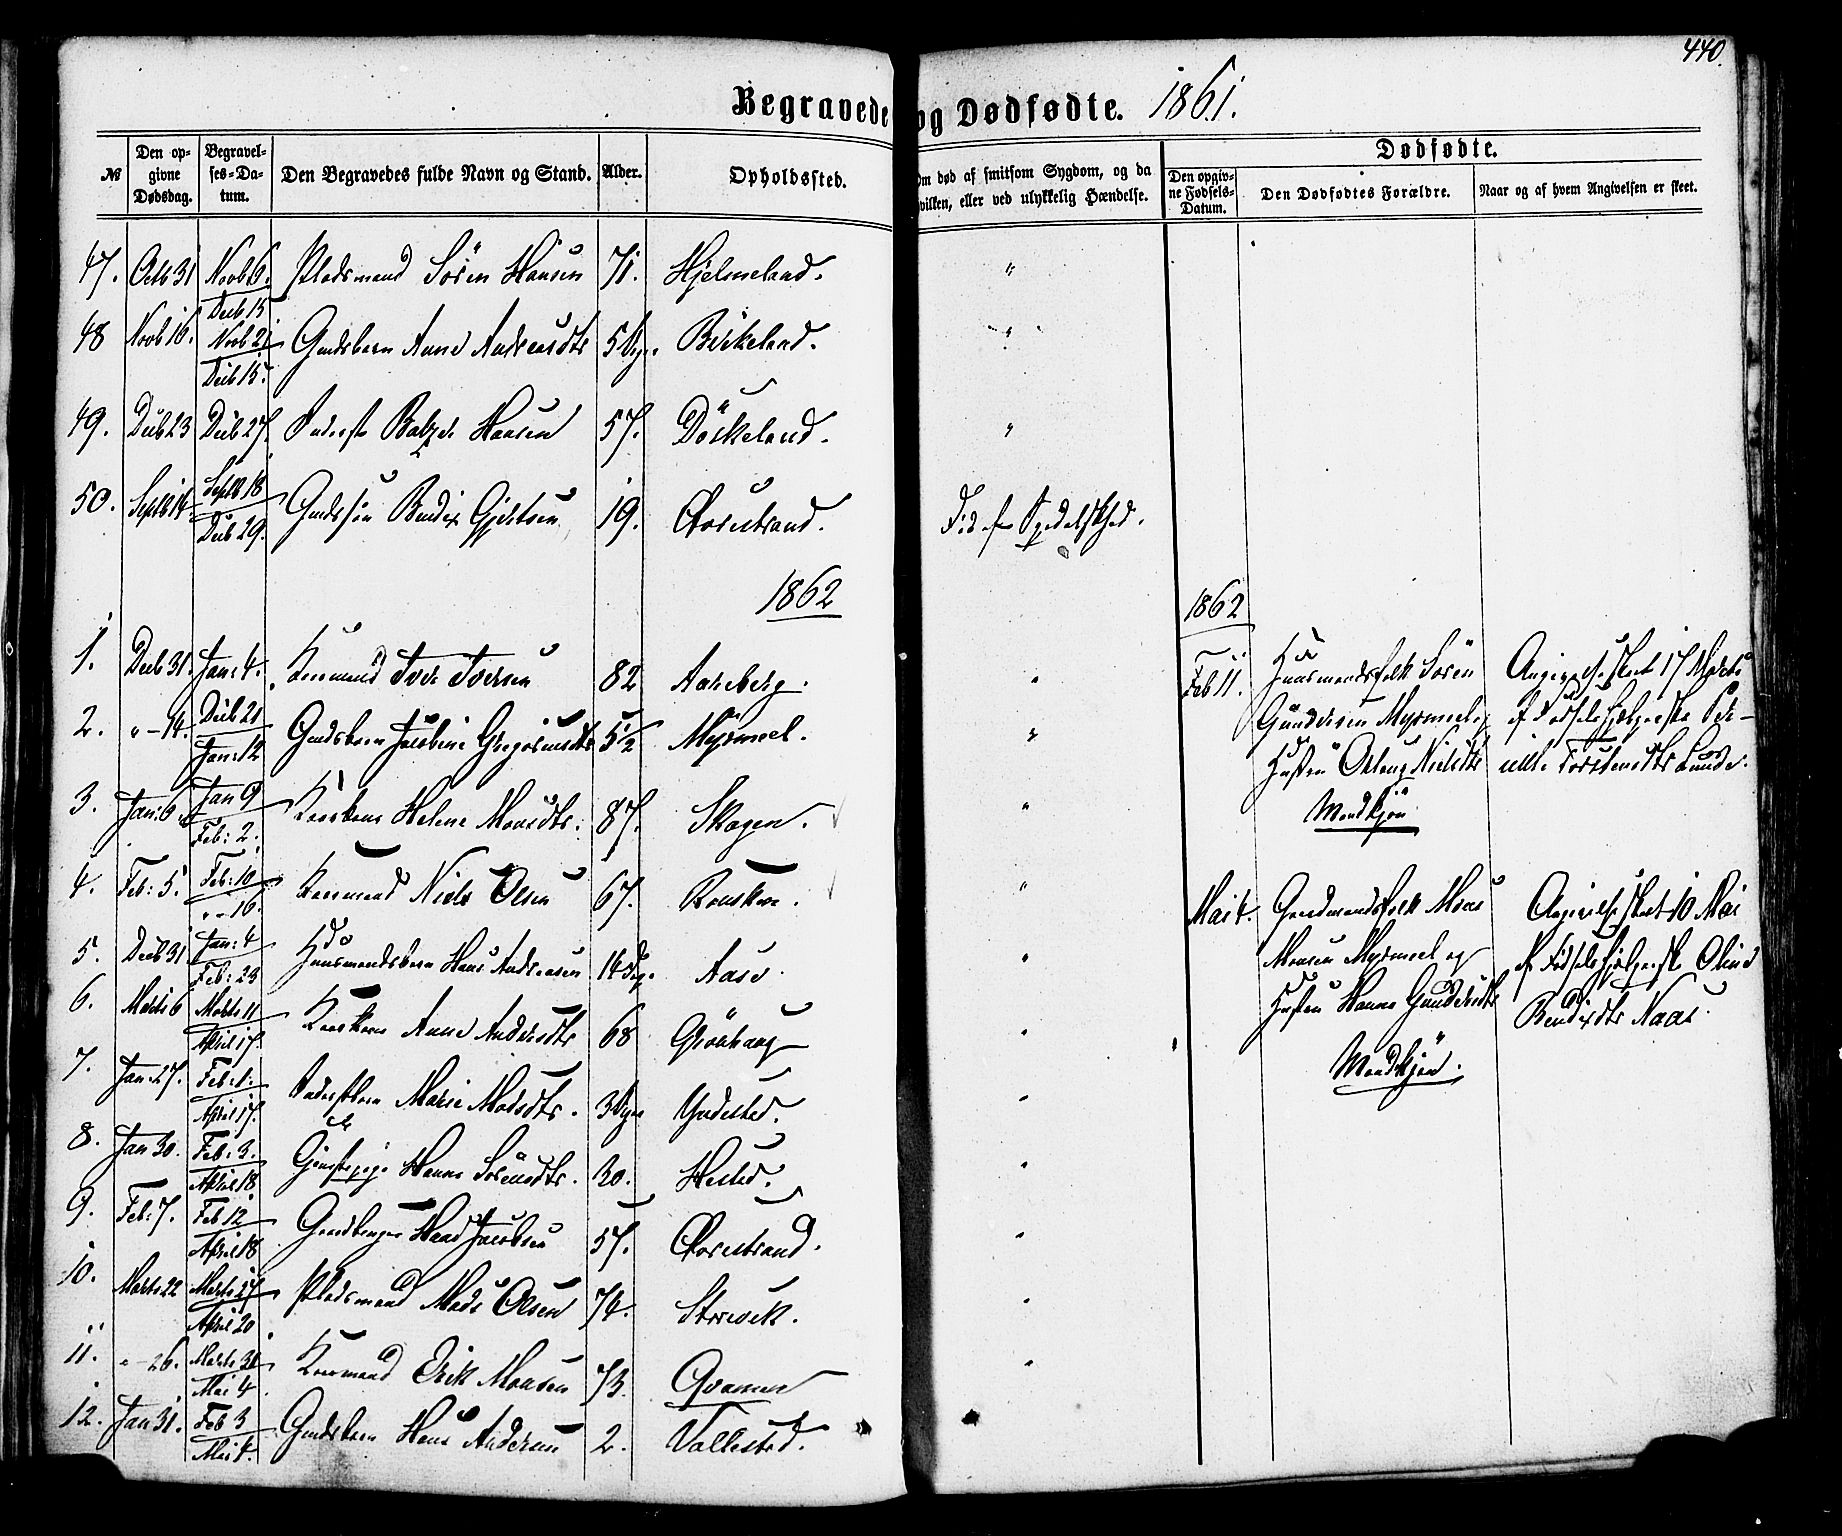 440.
Begravede og Dødfødte. 1861.
№ | Den opgivne Dødsdag. | Begravelses-Datum. | Den Begravedes fulde Navn og Stand. | Alder. | Opholdssted. | Om død af smitsom Sygdom, og da hvilken, eller ved ulykkelig Hændelse. | Dødfødte.
Den opgivne Fødsels-Datum. | Den Dødfødtes Forældre. | Naar og af hvem Angivelsen er skeet.
47. Octb 31 Novb 6. Decb 15 Pladsmand Sören Hansen 71. Hjelmeland. "
48 Novb 16. Novb 21 Decb 15. Gaardsbarn Anne Andreasdtr 5 Dge. Birkeland. "
49. Decb 23 Decb 27. Inderste Balzer Hansen 57. Döskeland. "
50. Septb 14. Septb 18 Decb 29. Gaardssön Bendix Gjertsen 19. Storestrand. Död af Spedalskhed.
1862
1862
1. Decb 31. Jan: 4. Kaarmand Iver Iversen 82 Aareberg. "
2. " - 14. Decb 21 Jan: 12 Gaardsbarn Jacobine Gregoriusdtr 5 1/2 Myrmel. "
3. Jan: 6 Jan 9 Feb: 2. Kaarkone Helene Monsdtr. 87. Skogen. "
4. Feb: 5. Feb: 10 " - 16. Kaarmand Niels Olsen 67. "
5. Decb 31 Jan: 4 Feb: 23 Huusmandsbarn Hans Andreasen 14 Dge. Aase. "
6. Marts 6 Marts 11 April 17. Kaarkone Anne Andersdtr 68 Grönhaug "
7. Jan: 27. Feb: 1. April 17. Inderstbarn Marie Madsdtr. 3 Dge Yndestad. "
8. Jan 30. Feb: 3. April 18. Gjenstepige Hanne Sörensdtr. 30. Hestad. "
9. Feb: 7. Feb 12 April 18 Gaardbruger Hans Jacobsen 57. Storestrand. "
10. Marts 22 Marts 27 April 20 Pladsmand Mads Olsen 74. Storevik. "
11. " - 26. Marts 30 Mai 4 Kaarmand Erik Monsen 73. Qvamen "
12. Jan 31. Feb 3 Mai 4. Gaardsbarn Hans Andersen 2. Vallestad.
Feb 11. Huusmandsfolk Sören Angivelse skeet 17 Marts
Gundersen Myrmel og af Födselshjelperske Per-
Hustru Oslaug Nielsdtr nille Torstensdtr Lunde.
Mandkjön
Mai 4. Gaardmandsfolk Mons Angivelse skeet 10 Mai
Monsen Myrmel og af Födselshjelperske Oline
Hustru Hanne Gundersdtr Bendixdtr Naas.
Mandkjön.